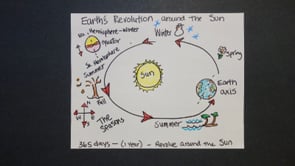 Earth's Revolution around the Sun
No. Hemisphere-winter
Equator
So. Hemisphere
Summer
Winter
Spring
Sun
Earth
axis
Fall
The
Seasons
Summer
365 days - (1 Year) - Revolve around the Sun